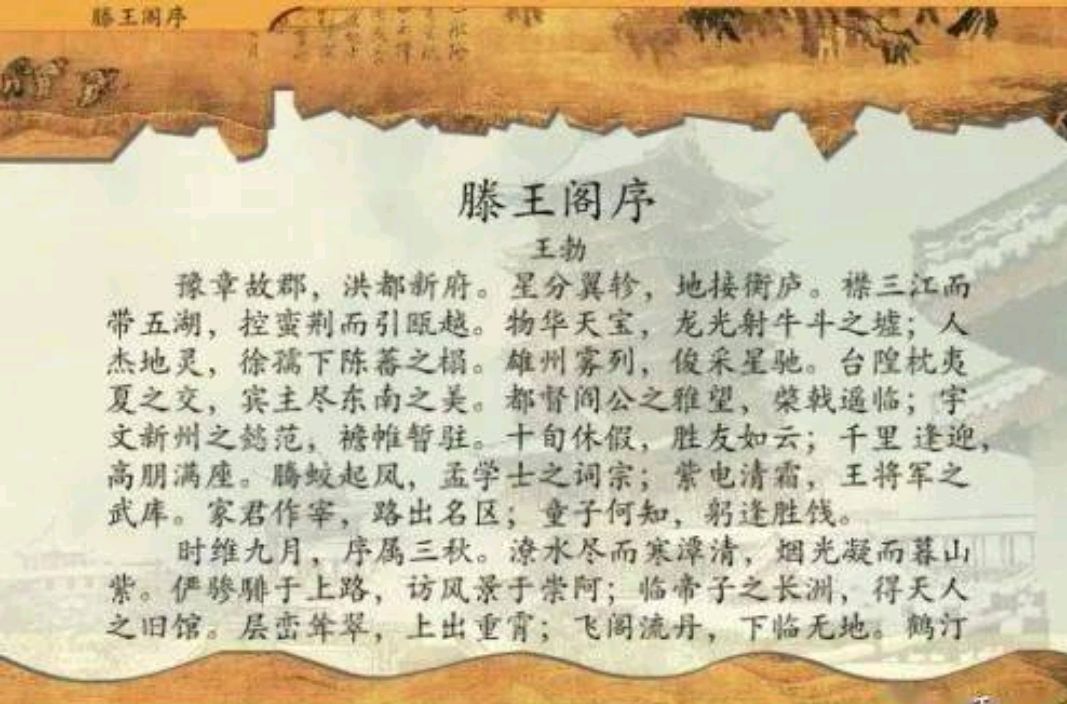 滕王阁序
滕王阁序
王勃
豫章故郡，洪都新府。星分翼轸，地接衡庐。襟三江而
带五湖，控蛮荆而引瓯越。物华天宝，龙光射牛斗之墟；人
杰地灵，徐孺下陈蕃之榻。雄州雾列，俊采星驰。台隍枕夷
夏之交，宾主尽东南之美。都督阎公之雅望，棨戟遥临；宇
文新州之懿范，襜帷暂驻。十旬休假，胜友如云；千里 逢迎，
高朋满座。腾蛟起凤，孟学士之词宗；紫电清霜，王将军之
武库。家君作宰，路出名区；童子何知，躬逢胜饯。
时维九月，序属三秋。潦水尽而寒潭清，烟光凝而暮山
紫。俨骖騑于上路，访风景于崇阿；临帝子之长洲，得天人
之旧馆。层峦耸翠，上出重霄；飞阁流丹，下临无地。鹤汀